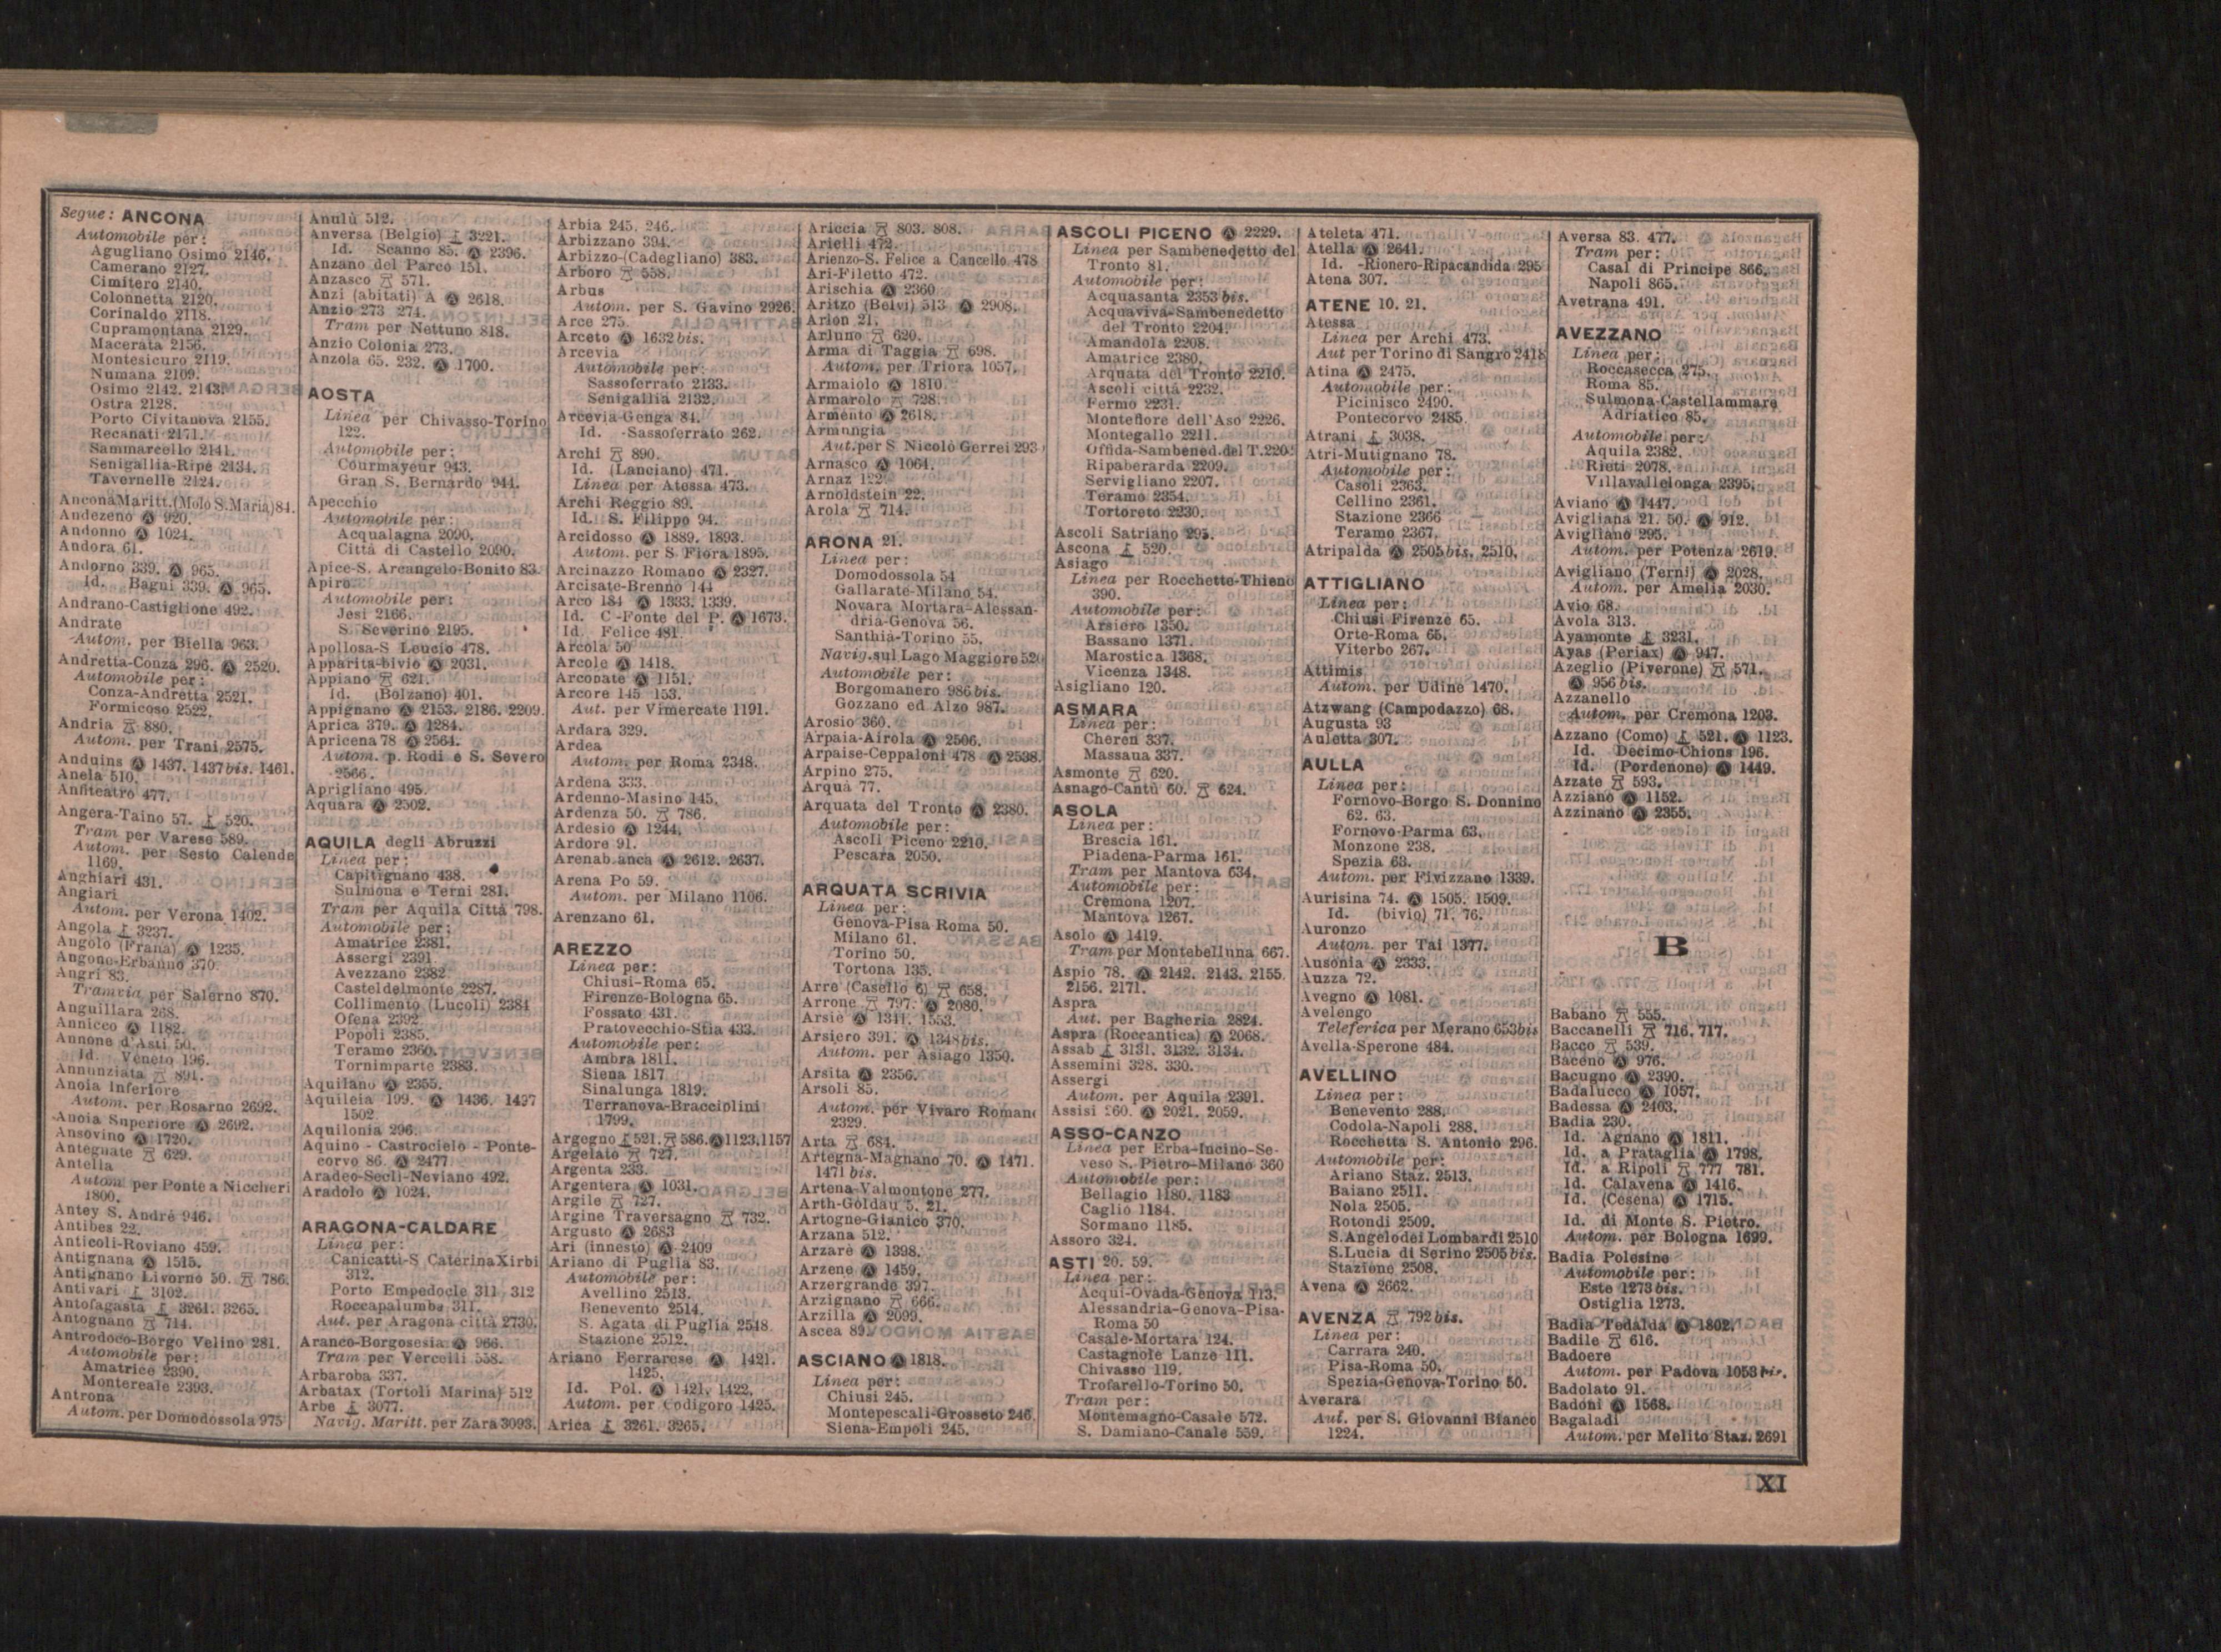 Segue: ANCONA
Automobile per:
Agugliano Osimo 2146.
Camerano 2127.
Cimitero 2140.
Colonnetta 2120.
Corinaldo 2118.
Cupramontana 2129.
Macerata 2156.
Montesicuro 2119.
Numana 2109.
Osimo 2142. 2143.
Ostra 2128.
Porto Civitanova 2155.
Recanati 2171.
Sammarcello 2141.
Senigallia-Ripe 2134.
Tavernelle 2124.
Ancona Maritt. (Molo S. Maria) 84.
Andezeno Ⓐ 920.
Andonno Ⓐ 1024.
Andora 61.
Andorno 339. Ⓐ 965.
Id. Bagni 339. Ⓐ 965.
Andrano-Castiglione 492.
Andrate
Autom. per Biella 963.
Andretta-Conza 296. Ⓐ 2520.
Automobile per:
Conza-Andretta 2521.
Formicoso 2522.
Andria 880.
Autom. per Trani 2575.
Anduins Ⓐ 1437. 1437 bis. 1461.
Anela 510.
Anfiteatro 477.
Angera-Taino 57. 520.
Tram per Varese 589.
Autom. per Sesto Calende
1169.
Anghiari 431.
Angiari
Autom. per Verona 1402.
Angola 3237.
Angolo (Frana) Ⓐ 1235.
Angone-Erbanno 370.
Angri 83.
Tramvia per Salerno 870.
Anguillara 268.
Annicco Ⓐ 1182.
Annone d'Asti 50.
Id. Veneto 196.
Annunziata 891.
Anoia Inferiore
Autom. per Rosarno 2692.
Anoia Superiore Ⓐ 2692.
Ansovino Ⓐ 1720.
Antegnate 629.
Antella
Autom. per Ponte a Niccheri
1800.
Antey S. André 946.
Antibes 22.
Anticoli-Roviano 459.
Antignana Ⓐ 1515.
Antignano Livorno 50. 786.
Antivari 3102.
Antofagasta 3261. 3265.
Antognano 714.
Antrodoco-Borgo Velino 281.
Automobile per:
Amatrice 2390.
Montereale 2393.
Antrona
Autom. per Domodossola 975
Anulù 512.
Anversa (Belgio) 3221.
Id. Scanno 85. Ⓐ 2396.
Anzano del Parco 151.
Anzasco 571.
Anzi (abitati) A Ⓐ 2618.
Anzio 273 274.
Tram per Nettuno 818.
Anzio Colonia 273.
Anzola 65. 232. Ⓐ 1700.
AOSTA
Linea per Chivasso-Torino
122.
Automobile per:
Courmayeur 943.
Gran S. Bernardo 944.
Apecchio
Automobile per:
Acqualagna 2090.
Città di Castello 2090.
Apice-S. Arcangelo-Bonito 83.
Apiro
Automobile per:
Jesi 2166.
S. Severino 2195.
Apollosa-S Leucio 478.
Apparita-bivio Ⓐ 2031.
Appiano 621.
Id. (Bolzano) 401.
Appignano Ⓐ 2153. 2186. 2209.
Aprica 379. Ⓐ 1284.
Apricena 78 Ⓐ 2564.
Autom. p. Rodi e S. Severo
2566.
Aprigliano 495.
Aquara Ⓐ 2502.
AQUILA degli Abruzzi
Linea per:
Capitignano 438.
Sulmona e Terni 281.
Tram per Aquila Città 798.
Automobile per:
Amatrice 2381.
Assergi 2391
Avezzano 2382
Casteldelmonte 2287.
Collimento (Lucoli) 2384
Ofena 2392
Popoli 2385.
Teramo 2360.
Tornimparte 2383.
Aquilano Ⓐ 2355.
Aquileia 199. Ⓐ 1436. 1497
1502
Aquilonia 296.
Aquino - Castrocielo - Ponte-
corvo 86. Ⓐ 2477
Aradeo-Secli-Neviano 492.
Aradolo Ⓐ 1024.
ARAGONA-CALDARE
Linea per:
Canicattì-S Caterina Xirbi
312.
Porto Empedocle 311. 312
Roccapalumba 311.
Aut. per Aragona città 2730.
Aranco-Borgosesia Ⓐ 966.
Tram per Vercelli 558.
Arbaroba 337.
Arbatax (Tortolì Marina) 512
Arbe 3077.
Navig. Maritt. per Zara 3093.
Arbia 245. 246.
Arbizzano 394.
Arbizzo-(Cadegliano) 383.
Arboro 558.
Arbus
Autom. per S. Gavino 2926.
Arce 275.
Arceto Ⓐ 1632 bis.
Arcevia
Automobile per:
Sassoferrato 2133.
Senigallia 2132.
Arcevia-Genga 84.
Id. -Sassoferrato 262.
Archi 890.
Id. (Lanciano) 471.
Linea per Atessa 473.
Archi Reggio 89.
Id. S. Filippo 94.
Arcidosso Ⓐ 1889. 1893.
Autom. per S. Fiora 1895.
Arcinazzo Romano Ⓐ 2327.
Arcisate-Brenno 144
Arco 184 Ⓐ 1333. 1339.
Id. C-Fonte del P. Ⓐ 1673.
Id. Felice 481.
Arcola 50
Arcole Ⓐ 1418.
Arconate Ⓐ 1151.
Arcore 145 153.
Aut. per Vimercate 1191.
Ardara 329.
Ardea
Autom. per Roma 2348.
Ardena 333.
Ardenno-Masino 145.
Ardenza 50. 786.
Ardesio Ⓐ 1244.
Ardore 91.
Arenabianca Ⓐ 2612. 2637.
Arena Po 59.
Autom. per Milano 1106.
Arenzano 61.
AREZZO
Linea per:
Chiusi-Roma 65.
Firenze-Bologna 65.
Fossato 431.
Pratovecchio-Stia 433.
Automobile per:
Ambra 1811.
Siena 1817
Sinalunga 1819.
Terranova-Bracciolini
1799.
Argegno 521. 586. Ⓐ 1123.1157
Argelato 727.
Argenta 233.
Argentera Ⓐ 1031.
Argile 727.
Argine Traversagno 732.
Argusto Ⓐ 2683
Ari (innesto) Ⓐ 2409
Ariano di Puglia 83.
Automobile per:
Avellino 2513.
Benevento 2514.
S. Agata di Puglia 2548.
Stazione 2512.
Ariano Ferrarese Ⓐ 1421.
1425.
Id. Pol. Ⓐ 1421. 1422.
Autom. per Codigoro 1425.
Arica 3261. 3265.
Ariccia 803. 808.
Arielli 472.
Arienzo-S. Felice a Cancello 478
Ari-Filetto 472.
Arischia Ⓐ 2360
Aritzo (Belvì) 513 Ⓐ 2908.
Arlon 21.
Arluno 620.
Arma di Taggia 698.
Autom. per Triora 1057.
Armaiolo Ⓐ 1810.
Armarolo 728.
Armento Ⓐ 2618.
Armungia
Aut. per S Nicolò Gerrei 293
Arnasco Ⓐ 1064.
Arnaz 122
Arnoldstein 22.
Arola 714.
ARONA 21.
Linea per:
Domodossola 54
Gallarate-Milano 54.
Novara Mortara-Alessan-
dria-Genova 56.
Santhià-Torino 55.
Navig. sul Lago Maggiore 520
Automobile per:
Borgomanero 986 bis.
Gozzano ed Alzo 987.
Arosio 360.
Arpaia-Airola Ⓐ 2506.
Arpaise-Ceppaloni 478 Ⓐ 2538.
Arpino 275.
Arquà 77.
Arquata del Tronto Ⓐ 2380.
Automobile per:
Ascoli Piceno 2210.
Pescara 2050.
ARQUATA SCRIVIA
Linea per:
Genova-Pisa Roma 50.
Milano 61.
Torino 50.
Tortona 135.
Arre (Casello 6) 658.
Arrone 797. Ⓐ 2080.
Arsiè Ⓐ 1341. 1553.
Arsiero 391. Ⓐ 1348 bis.
Autom. per Asiago 1350.
Arsita Ⓐ 2356.
Arsoli 85.
Autom. per Vivaro Romano
2329.
Arta 684.
Artegna-Magnano 70. Ⓐ 1471.
1471 bis.
Artena-Valmontone 277.
Arth-Goldau 5. 21.
Artogne-Gianico 370.
Arzana 512.
Arzarè Ⓐ 1398.
Arzene Ⓐ 1459.
Arzergrande 397.
Arzignano 666.
Arzilla Ⓐ 2099.
Ascea 89.
ASCIANO Ⓐ 1818.
Linea per:
Chiusi 245.
Montepescali-Grosseto 246
Siena-Empoli 245.
ASCOLI PICENO Ⓐ 2229.
Linea per Sambenedetto del
Tronto 81.
Automobile per:
Acquasanta 2353 bis.
Acquaviva-Sambenedetto
del Tronto 2204.
Amandola 2208.
Amatrice 2380.
Arquata del Tronto 2210.
Ascoli città 2232.
Fermo 2231.
Montefiore dell'Aso 2226.
Montegallo 2211.
Offida-Sambened. del T. 220
Ripaberarda 2209.
Servigliano 2207.
Teramo 2354.
Tortoreto 2230.
Ascoli Satriano 295.
Ascona 520.
Asiago
Linea per Rocchette-Thiene
390.
Automobile per:
Arsiero 1350.
Bassano 1371.
Marostica 1368.
Vicenza 1348.
Asigliano 120.
ASMARA
Linea per:
Cheren 337.
Massaua 337.
Asmonte 620.
Asnago-Cantù 60. 624.
ASOLA
Linea per:
Brescia 161.
Piadena-Parma 161.
Tram per Mantova 634.
Automobile per:
Cremona 1207.
Mantova 1267.
Asolo Ⓐ 1419.
Tram per Montebelluna 667.
Aspio 78. Ⓐ 2142. 2143. 2155.
2156. 2171.
Aspra
Aut. per Bagheria 2824.
Aspra (Roccantica) Ⓐ 2068.
Assab 3131. 3132. 3134.
Assemini 328. 330.
Assergi
Autom. per Aquila 2391.
Assisi 260. Ⓐ 2021. 2059.
ASSO-CANZO
Linea per Erba-Incino-Se-
veso S. Pietro-Milano 360
Automobile per:
Bellagio 1180. 1183
Caglio 1184.
Sormano 1185.
Assoro 324.
ASTI 20. 59.
Linea per:
Acqui-Ovada-Genova 113.
Alessandria-Genova-Pisa-
Roma 50
Casale-Mortara 124.
Castagnole Lanze 111.
Chivasso 119.
Trofarello-Torino 50.
Tram per:
Montemagno-Casale 572.
S. Damiano-Canale 559.
Ateleta 471.
Atella Ⓐ 2641.
Id. -Rionero-Ripacandida 295
Atena 307.
ATENE 10. 21.
Atessa
Linea per Archi 473.
Aut per Torino di Sangro 2418
Atina Ⓐ 2475.
Automobile per:
Picinisco 2490.
Pontecorvo 2485.
Atrani 3038.
Atri-Mutignano 78.
Automobile per:
Casoli 2363.
Cellino 2361.
Stazione 2366
Teramo 2367.
Atripalda Ⓐ 2505 bis. 2510.
ATTIGLIANO
Linea per:
Chiusi Firenze 65.
Orte-Roma 65.
Viterbo 267.
Attimis
Autom. per Udine 1470.
Atzwang (Campodazzo) 68.
Augusta 93
Auletta 307.
AULLA
Linea per:
Fornovo-Borgo S. Donnino
62. 63.
Fornovo-Parma 63.
Monzone 238.
Spezia 63.
Autom. per Fivizzano 1339.
Aurisina 74. Ⓐ 1505. 1509.
Id. (bivio) 71. 76.
Auronzo
Autom. per Tai 1377.
Ausonia Ⓐ 2333.
Auzza 72.
Avegno Ⓐ 1081.
Avelengo
Teleferica per Merano 653 bis
Avella-Sperone 484.
AVELLINO
Linea per:
Benevento 288.
Codola-Napoli 288.
Rocchetta S. Antonio 296.
Automobile per:
Ariano Staz. 2513.
Baiano 2511.
Nola 2505.
Rotondi 2509.
S. Angelo dei Lombardi 2510
S. Lucia di Serino 2505 bis.
Stazione 2508.
Avena Ⓐ 2662.
AVENZA 792 bis.
Linea per:
Carrara 240.
Pisa-Roma 50.
Spezia-Genova-Torino 50.
Averara
Aut. per S. Giovanni Bianco
1224.
Aversa 83. 477.
Tram per:
Casal di Principe 866.
Napoli 865.
Avetrana 491.
AVEZZANO
Linea per:
Roccasecca 275.
Roma 85.
Sulmona-Castellammare
Adriatico 85.
Automobile per:
Aquila 2382.
Rieti 2078.
Villavallelonga 2395.
Aviano Ⓐ 1447.
Avigliana 21. 50. Ⓐ 912.
Avigliano 295.
Autom. per Potenza 2619.
Avigliano (Terni) Ⓐ 2028.
Autom. per Amelia 2030.
Avio 68.
Avola 313.
Ayamonte 3231.
Ayas (Periax) Ⓐ 947.
Azeglio (Piverone) 571.
Ⓐ 956 bis.
Azzanello
Autom. per Cremona 1203.
Azzano (Como) 521. Ⓐ 1123.
Id. Decimo-Chions 196.
Id. (Pordenone) Ⓐ 1449.
Azzate 593.
Azziano Ⓐ 1152.
Azzinano Ⓐ 2355.
B
Babano 555.
Baccanelli 716. 717.
Bacco 539.
Baceno Ⓐ 976.
Bacugno Ⓐ 2390.
Badalucco Ⓐ 1057.
Badessa Ⓐ 2403.
Badia 230.
Id. Agnano Ⓐ 1811.
Id. a Prataglia Ⓐ 1798.
Id. a Ripoli 777 781.
Id. Calavena Ⓐ 1416.
Id. (Cesena) Ⓐ 1715.
Id. di Monte S. Pietro.
Autom. per Bologna 1699.
Badia Polesine
Automobile per:
Este 1273 bis.
Ostiglia 1273.
Badia Tedalda Ⓐ 1802.
Badile 616.
Badoere
Autom. per Padova 1053 bis.
Badolato 91.
Badoni Ⓐ 1568.
Bagaladi
Autom. per Melito Staz. 2691
XI